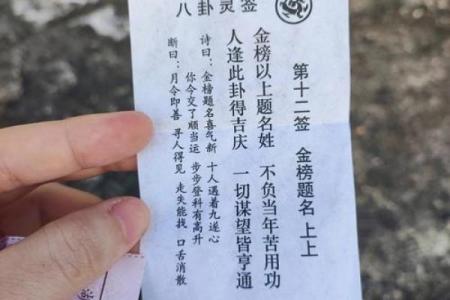 八卦灵签
第十二签 金榜题名 上上
金榜以上题名姓 不负当年苦用功
人逢此卦得吉庆 一切谋望皆亨通
诗曰：金榜题名喜气新 十人遇着九遂心
你今交了顺当运 步步登科有高升
断曰：月令即善 寻人得见 走失能找 口舌消散